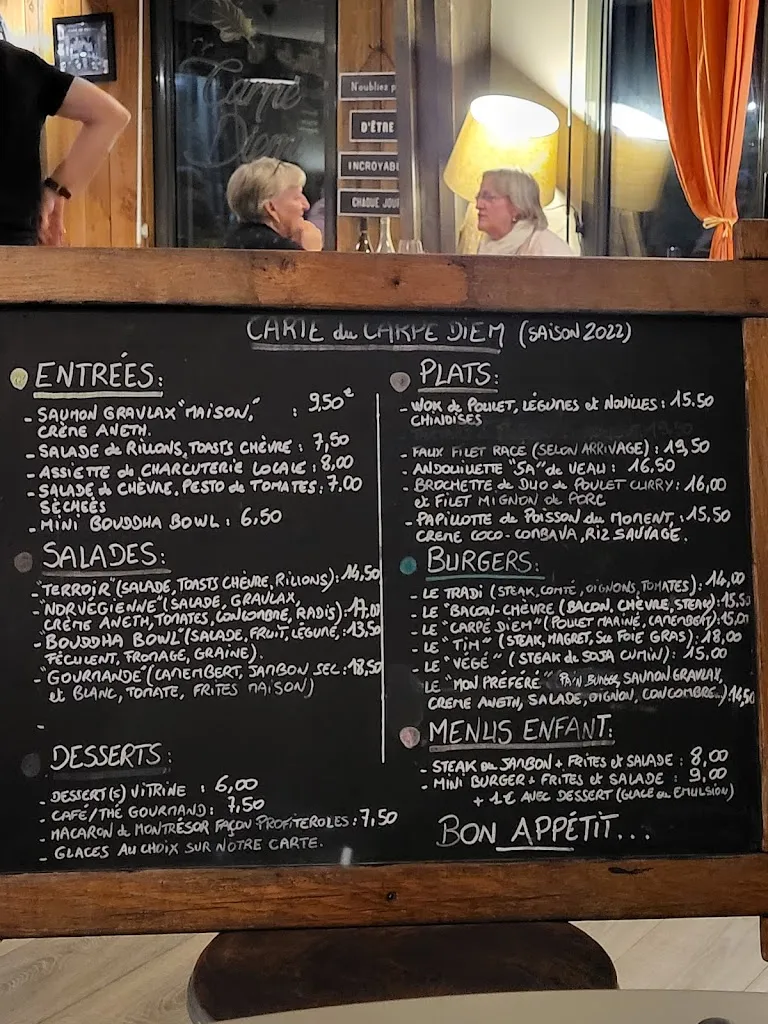 Carpe
Diem
N'oubliez p
D'ÊTRE
INCROYABL
CHAQUE JOUR
CARTE du CARPE DIEM (SAISON 2022)
ENTRÉES:
- SAUMON GRAVLAX "MAISON," : 9,50€
CRÈME ANETH.
- SALADE de RILLONS, TOASTS CHÈVRE : 7,50
- ASSIETTE de CHARCUTERIE LOCALE : 8,00
- SALADE de CHÈVRE, PESTO de TOMATES : 7,00
SÉCHÉES
- MINI BOUDDHA BOWL : 6,50
SALADES:
- "TERROIR" (SALADE, TOASTS CHÈVRE, RILLONS) : 14,50
- "NORVÉGIENNE" (SALADE, GRAVLAX,
CRÈME ANETH, TOMATES, CONCOMBRE, RADIS) : 17,00
- "BOUDDHA BOWL" (SALADE, FRUIT, LÉGUME, : 13,50
FÉCULENT, FROMAGE, GRAINE).
- "GOURMANDE" (CAMEMBERT, JAMBON SEC : 18,50
et BLANC, TOMATE, FRITES MAISON)
-
DESSERTS:
- DESSERT(S) VITRINE : 6,00
- CAFÉ/THÉ GOURMAND : 7,50
- MACARON de MONTRÉSOR FAÇON PROFITEROLES : 7,50
- GLACES AU CHOIX SUR NOTRE CARTE.
PLATS:
- WOK de POULET, LÉGUMES et NOUILLES : 15.50
CHINOISES
- FAUX FILET RACE (SELON ARRIVAGE) : 19,50
- ANDOUILLETTE "5A" de VEAU : 16.50
- BROCHETTE de DUO de POULET CURRY : 16,00
et FILET MIGNON de PORC
- PAPILLOTE de POISSON du MOMENT, : 15,50
CREME COCO-COMBAVA, RIZ SAUVAGE.
BURGERS:
- LE TRADI (STEAK, COMTÉ, OIGNONS, TOMATES) : 14,00
- LE "BACON-CHÈVRE (BACON, CHÈVRE, STEAK) : 15,50
- LE "CARPE DIEM" (POULET MARINÉ, CAMEMBERT) : 15,00
- LE "TIM" (STEAK, MAGRET, Sce FOIE GRAS) : 18,00
- LE "VÉGÉ" (STEAK de SOJA CUMIN) : 15,00
LE "MON PRÉFÉRÉ" PAIN BURGER, SAUMON GRAVLAX,
CREME ANETH, SALADE, OIGNON, CONCOMBRE...) : 14,50
MENUS ENFANT:
- STEAK ou JAMBON + FRITES et SALADE : 8,00
- MINI BURGER + FRITES et SALADE : 9,00
+ 1€ AVEC DESSERT (GLACE ou EMULSION)
BON APPÉTIT...